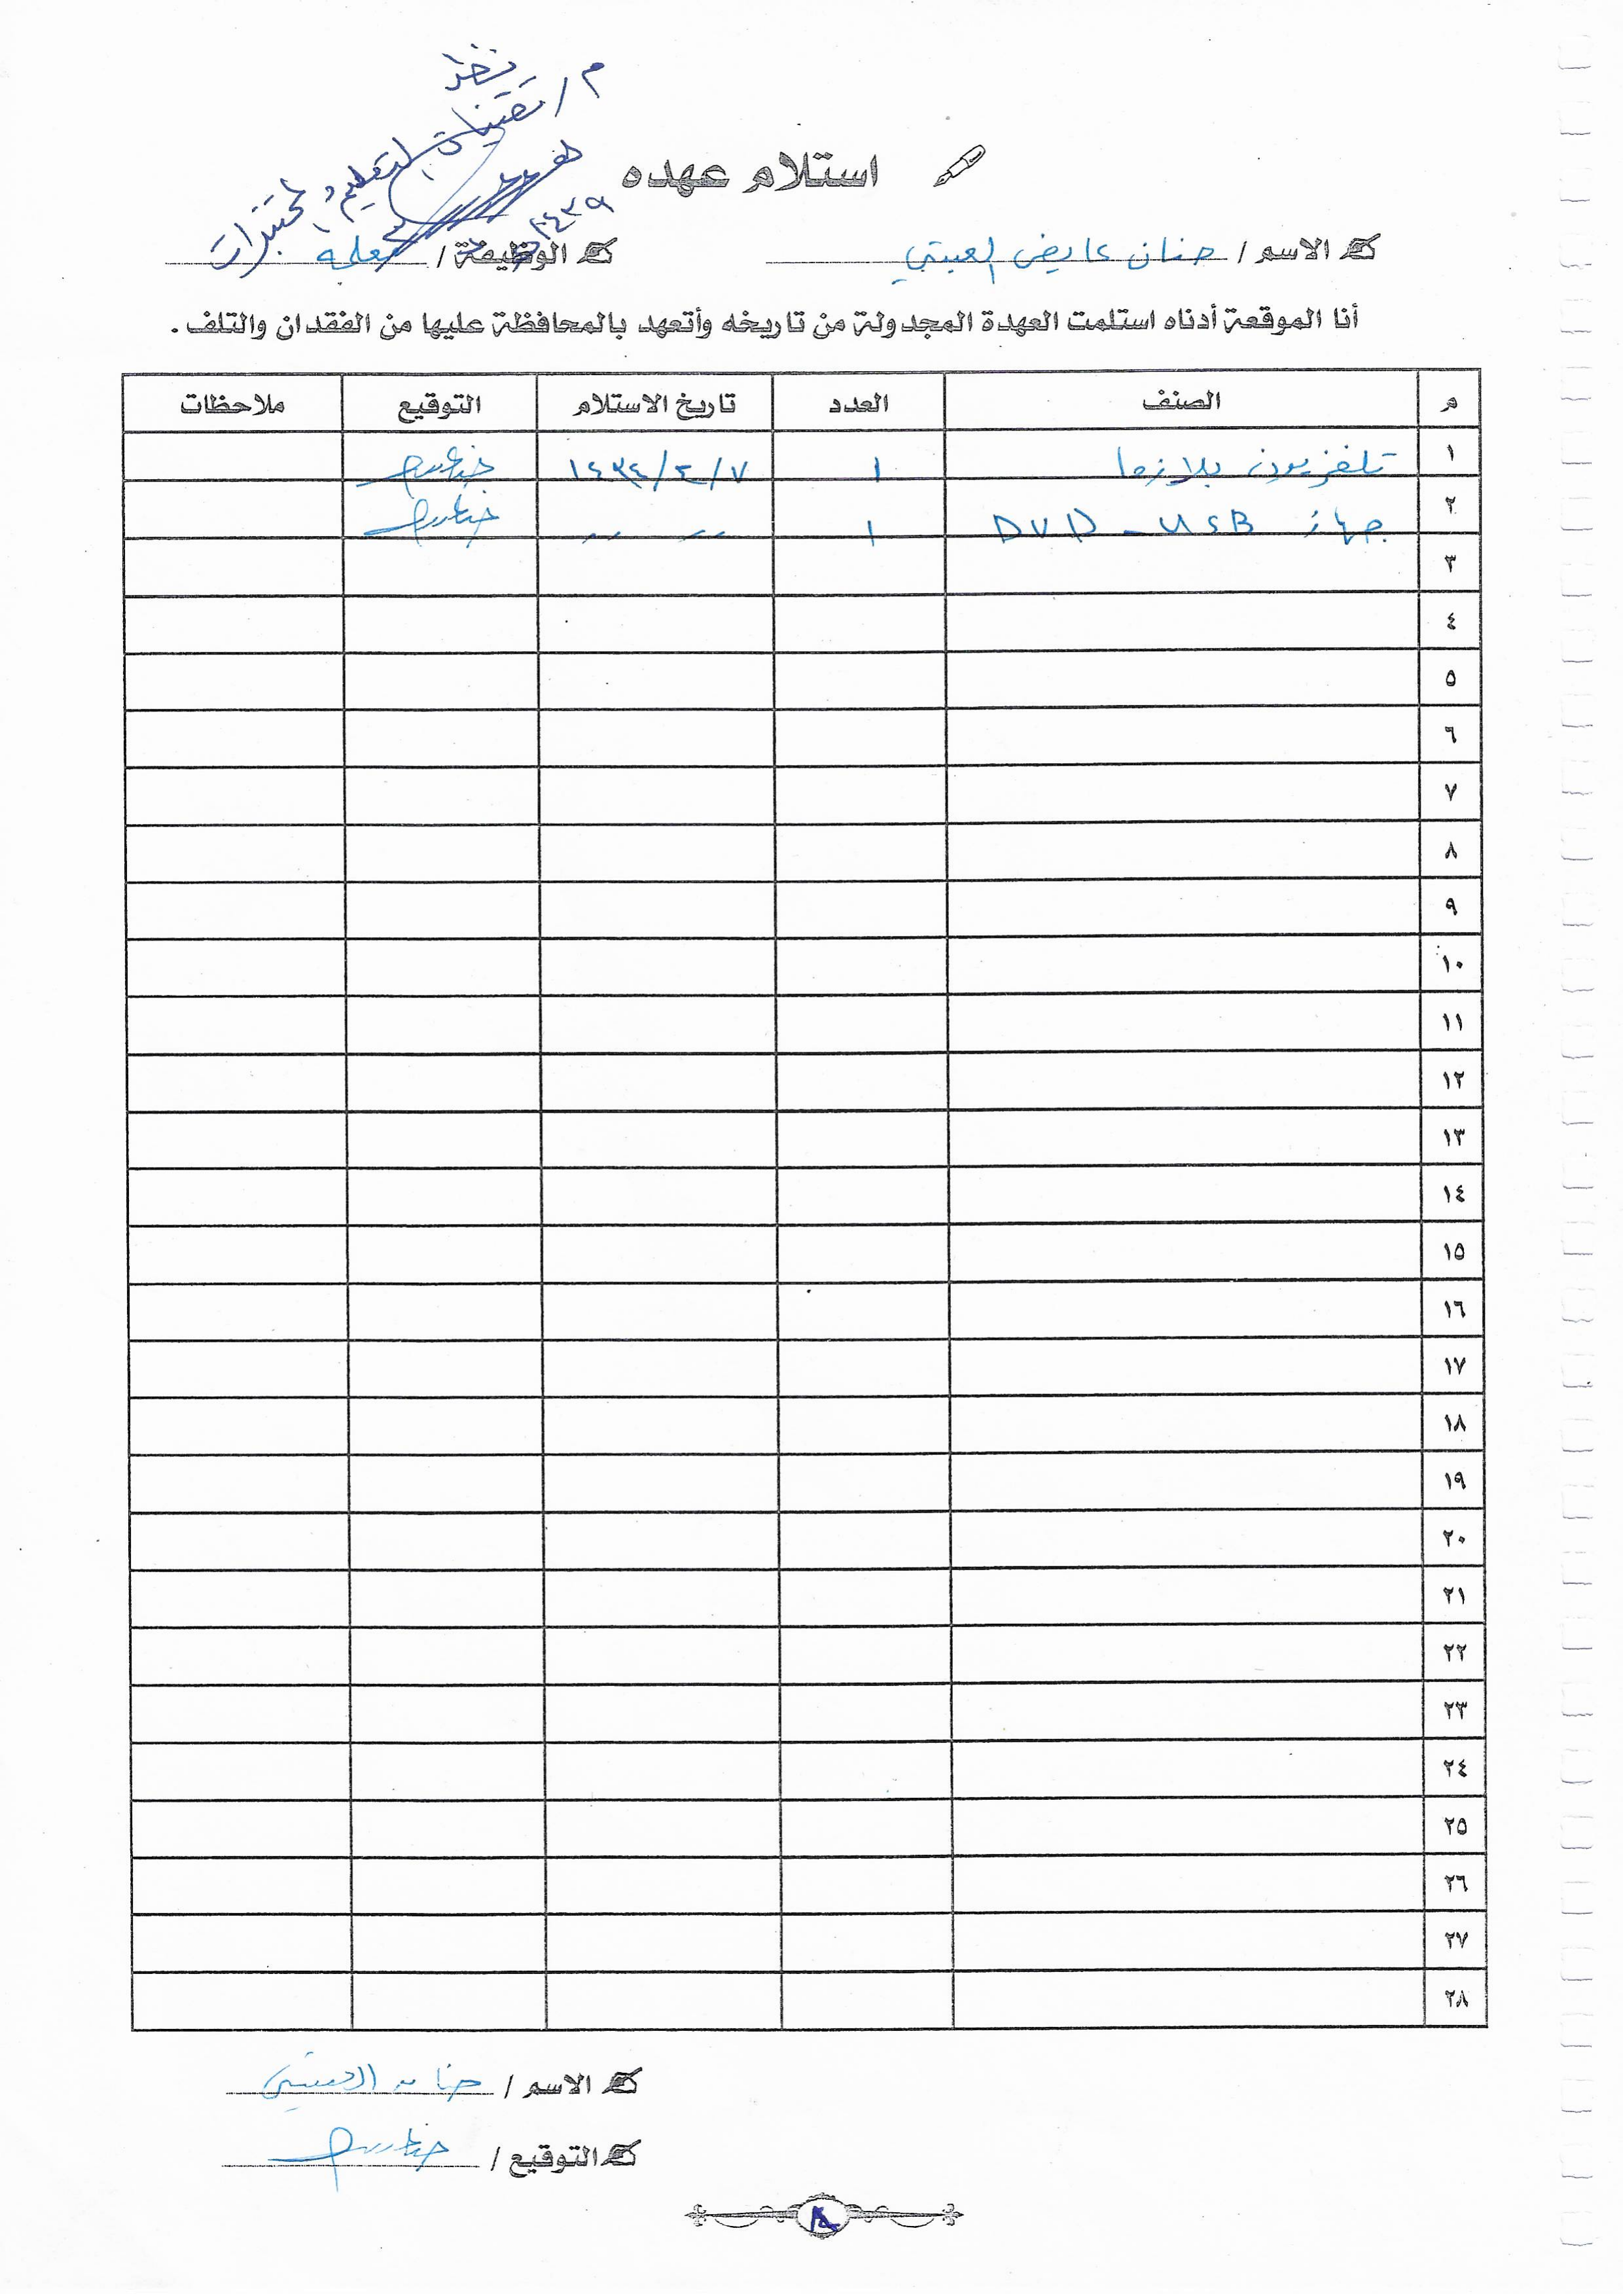 نظر
م / تقنيات التعليم و مختبرات
١٤٣٩
استلام عهده
الاسم / حنان عايض العتيبي
الوظيفة / معلمة
أنا الموقعة أدناه استلمت العهدة المجدولة من تاريخه وأتعهد بالمحافظة عليها من الفقدان والتلف .
م الصنف العدد تاريخ الاستلام التوقيع ملاحظات
١ تلفزيون بلازما ١ ٧/٣/١٤٣٤
٢ جهاز DVD - USB ١ ,, ,,
٣
٤
٥
٦
٧
٨
٩
١٠
١١
١٢
١٣
١٤
١٥
١٦
١٧
١٨
١٩
٢٠
٢١
٢٢
٢٣
٢٤
٢٥
٢٦
٢٧
٢٨
الاسم / حنان العتيبي
التوقيع /